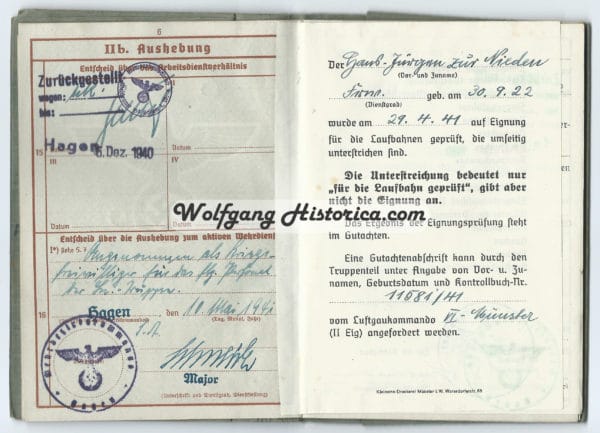 6
IIb. Aushebung
Entscheid über das Arbeitsdienstverhältnis
Zurückgestellt
wegen:
bis:
Hagen
6. Dez. 1940
15
III
IV
Datum
Datum
Datum
Entscheid über die Aushebung zum aktiven Wehrdienst
I*) siehe S. 7
Angenommen als Kriegs-
freiwilliger für das flg. Personal
der Lw.-Truppen.
16
Hagen, den 10. Mai 1941
Major
Wehrbezirkskommando
Hagen
Der Hans-Jürgen zur Nieden
(Vor- und Zuname)
geb. am 30. 9. 22
(Dienstgrad)
wurde am 29. 4. 41 auf Eignung
für die Laufbahnen geprüft, die umseitig
unterstrichen sind.
Die Unterstreichung bedeutet nur
"für die Laufbahn geprüft", gibt aber
nicht die Eignung an.
Das Ergebnis der Eignungsprüfung steht
im Gutachten.
Eine Gutachtenabschrift kann durch den
Truppenteil unter Angabe von Vor- u. Zu-
namen, Geburtsdatum und Kontrollbuch-Nr.
11681/41
vom Luftgaukommando VI - Münster
(II Eig) angefordert werden.
Wolfgang Historica.com